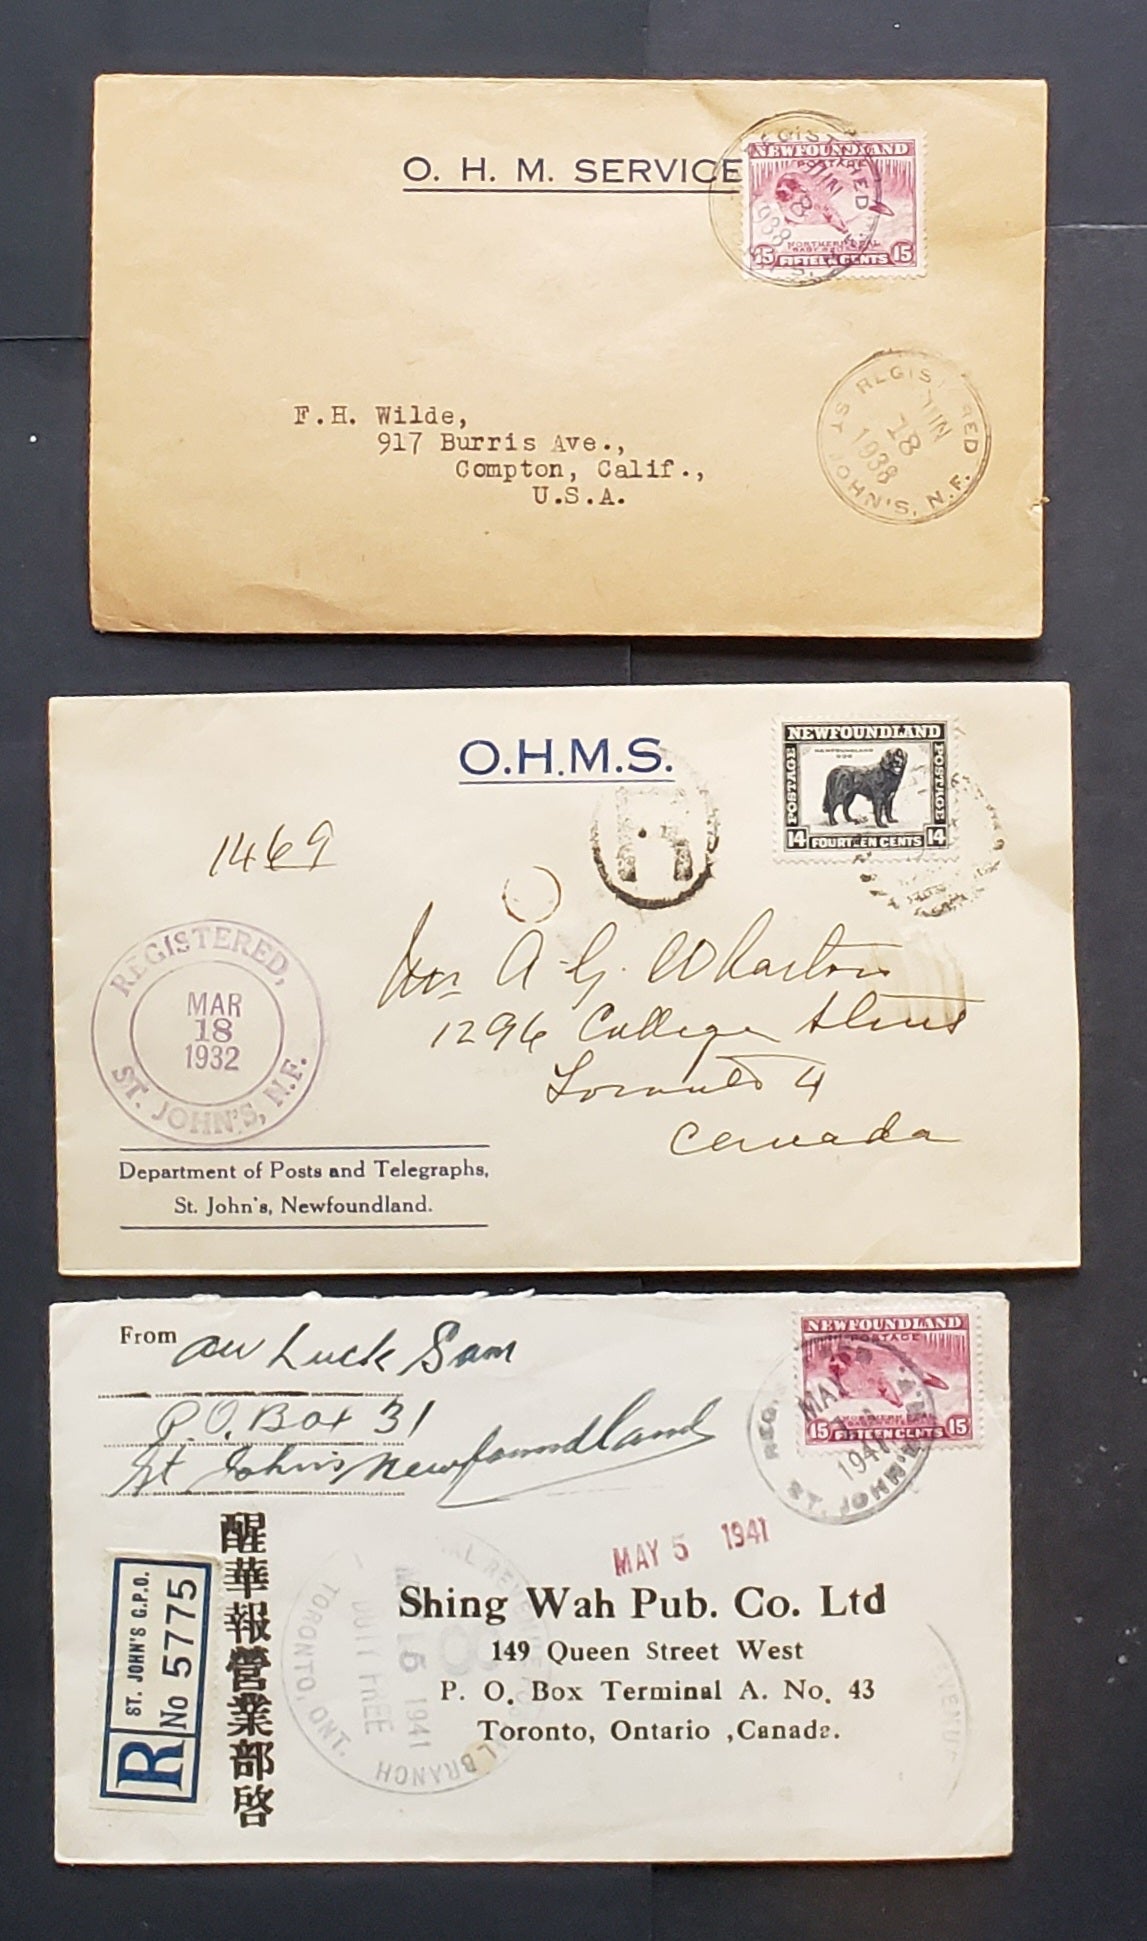 O. H. M. SERVICE
NEWFOUNDLAND
POSTAGE
NORTHERN SEAL
15 FIFTEEN CENTS 15
REGISTERED
JUN
18
1938
F.H. Wilde,
917 Burris Ave.,
Compton, Calif.,
U.S.A.
REGISTERED
JUN
18
1938
ST JOHN'S, N.F.
O.H.M.S.
NEWFOUNDLAND
NEWFOUNDLAND
DOG
POSTAGE
POSTAGE
14 FOURTEEN CENTS 14
R
1469
Mr A. G. Wharton
1296 College Street
Toronto 4
Canada
REGISTERED,
MAR
18
1932
ST. JOHN'S, N.F.
Department of Posts and Telegraphs,
St. John's, Newfoundland.
From Au Luck Sam
P.O. Box 31
St John's Newfoundland
NEWFOUNDLAND
POSTAGE
15 FIFTEEN CENTS 15
MAY
1941
ST. JOHN'S
MAY 5 1941
R
ST. JOHN'S G.P.O.
No 5775
醒華報營業部啓
5 1941
FREE
TORONTO, ONT.
BRANCH
Shing Wah Pub. Co. Ltd
149 Queen Street West
P. O. Box Terminal A. No. 43
Toronto, Ontario ,Canada.